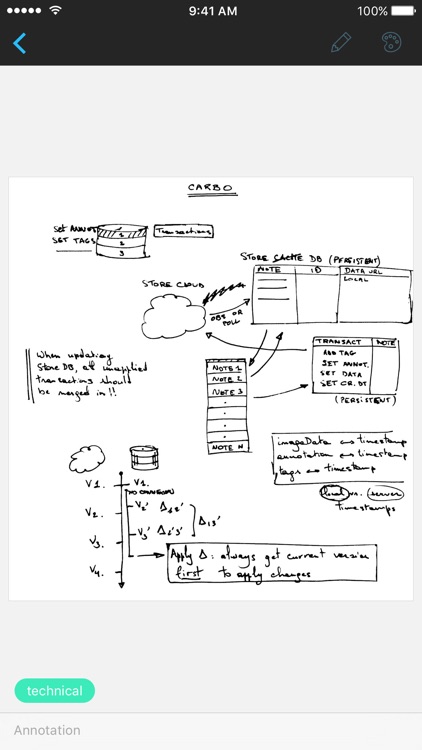 9:41 AM
100%
CARBO
Set ANNOT
SET TAGS
1
2
3
Transactions
STORE CACHE DB (PERSISTENT)
NOTE ID DATA URL
LOCAL
STORE CLOUD
OBS OR
POLL
TRANSACT NOTE
ADD TAG
SET ANNOT.
SET DATA
SET CR. DT
(PERSISTENT)
When updating
Store DB, all unapplied
transactions should
be merged in!!
NOTE 1
NOTE 2
NOTE 3
NOTE N
imageData as timestamp
annotation as timestamp
tags as timestamp
local vs. server
timestamps
V1. V1.
NO CONNECTION
V2. V2' Δ12'
Δ13'
V3. V3' Δ2'3'
V4.
Apply Δ: always get current version
first to apply changes
technical
Annotation